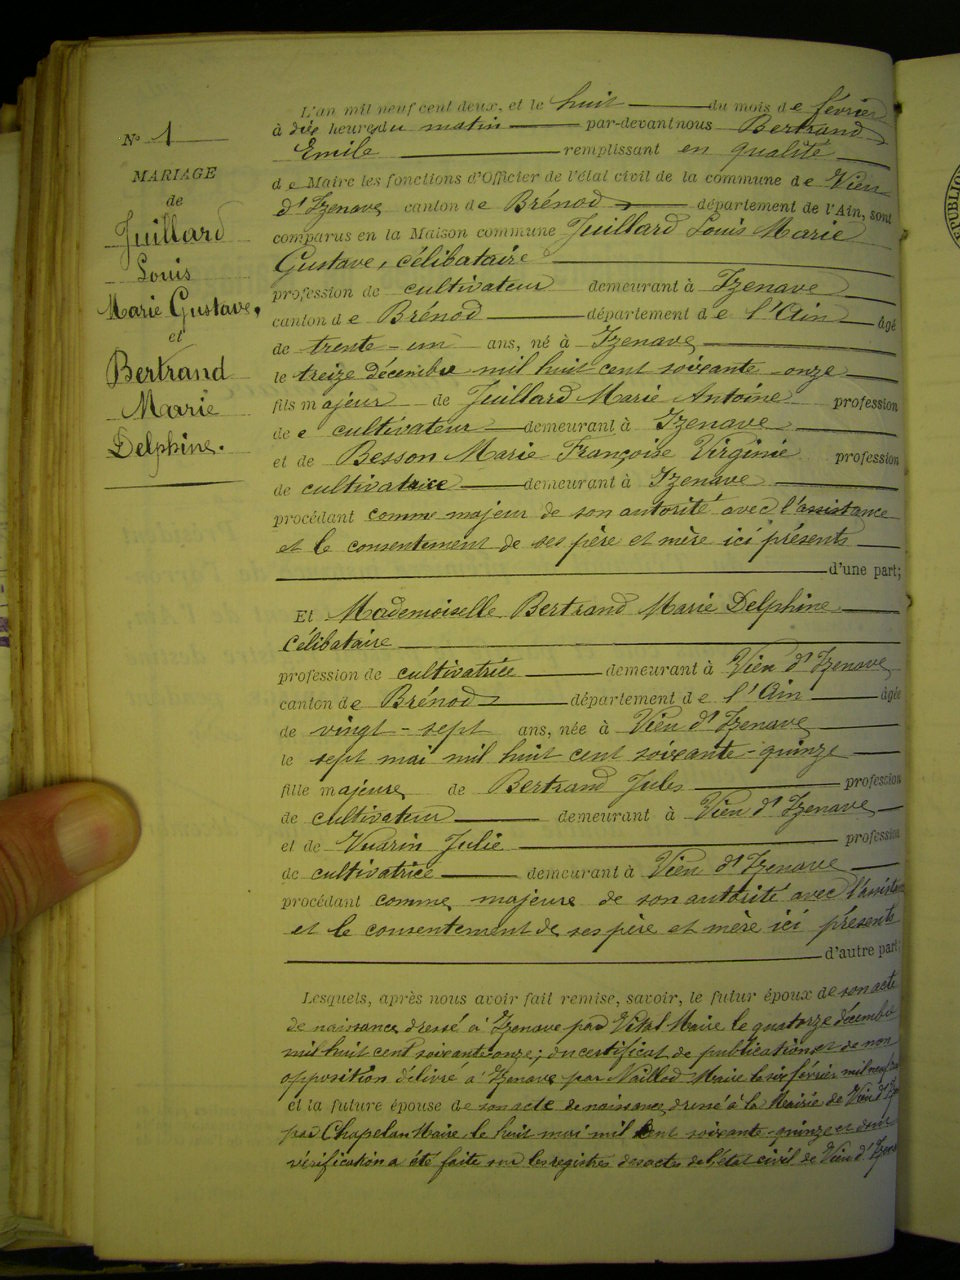 N° 1
MARIAGE
de
Juillard
Louis
Marie Gustave,
et
Bertrand
Marie
Delphine.
L'an mil neuf cent deux, et le huit du mois de février
à dix heures du matin par-devant nous Bertrand
Emile remplissant en qualité
de Maire les fonctions d'Officier de l'état civil de la commune de Vieu
d'Izenave canton de Brénod département de l'Ain, sont
comparus en la Maison commune Juillard Louis Marie
Gustave, célibataire
profession de cultivateur demeurant à Izenave
canton de Brénod département de l'Ain âgé
de trente-un ans, né à Izenave
le treize décembre mil huit cent soixante-onze
fils majeur de Juillard Marie Antoine profession
de cultivateur demeurant à Izenave
et de Besson Marie Françoise Virginie profession
de cultivatrice demeurant à Izenave
procédant comme majeur de son autorité avec l'assistance
et le consentement de ses père et mère ici présents
d'une part;
Et Mademoiselle Bertrand Marie Delphine
célibataire
profession de cultivatrice demeurant à Vieu d'Izenave
canton de Brénod département de l'Ain âgée
de vingt-sept ans, née à Vieu d'Izenave
le sept mai mil huit cent soixante-quinze
fille majeure de Bertrand Jules profession
de cultivateur demeurant à Vieu d'Izenave
et de Vuarin Julie profession
de cultivatrice demeurant à Vieu d'Izenave
procédant comme majeure de son autorité avec l'assistan
et le consentement de ses père et mère ici présents
d'autre part;
Lesquels, après nous avoir fait remise, savoir, le futur époux de son acte
de naissance dressé à Izenave par Vital Maire le quatorze décembre
mil huit cent soixante onze; du certificat de publications et de non
opposition délivré à Izenave par Maire le six février mil neuf
et la future épouse de son acte de naissance dressé à la Mairie de Vieu d'Iz
par Chapelan Maire, le huit mai mil cent soixante-quinze et dont
vérification a été faite sur les registres des actes de l'état civil de Vieu d'Izena
PUBLIQ